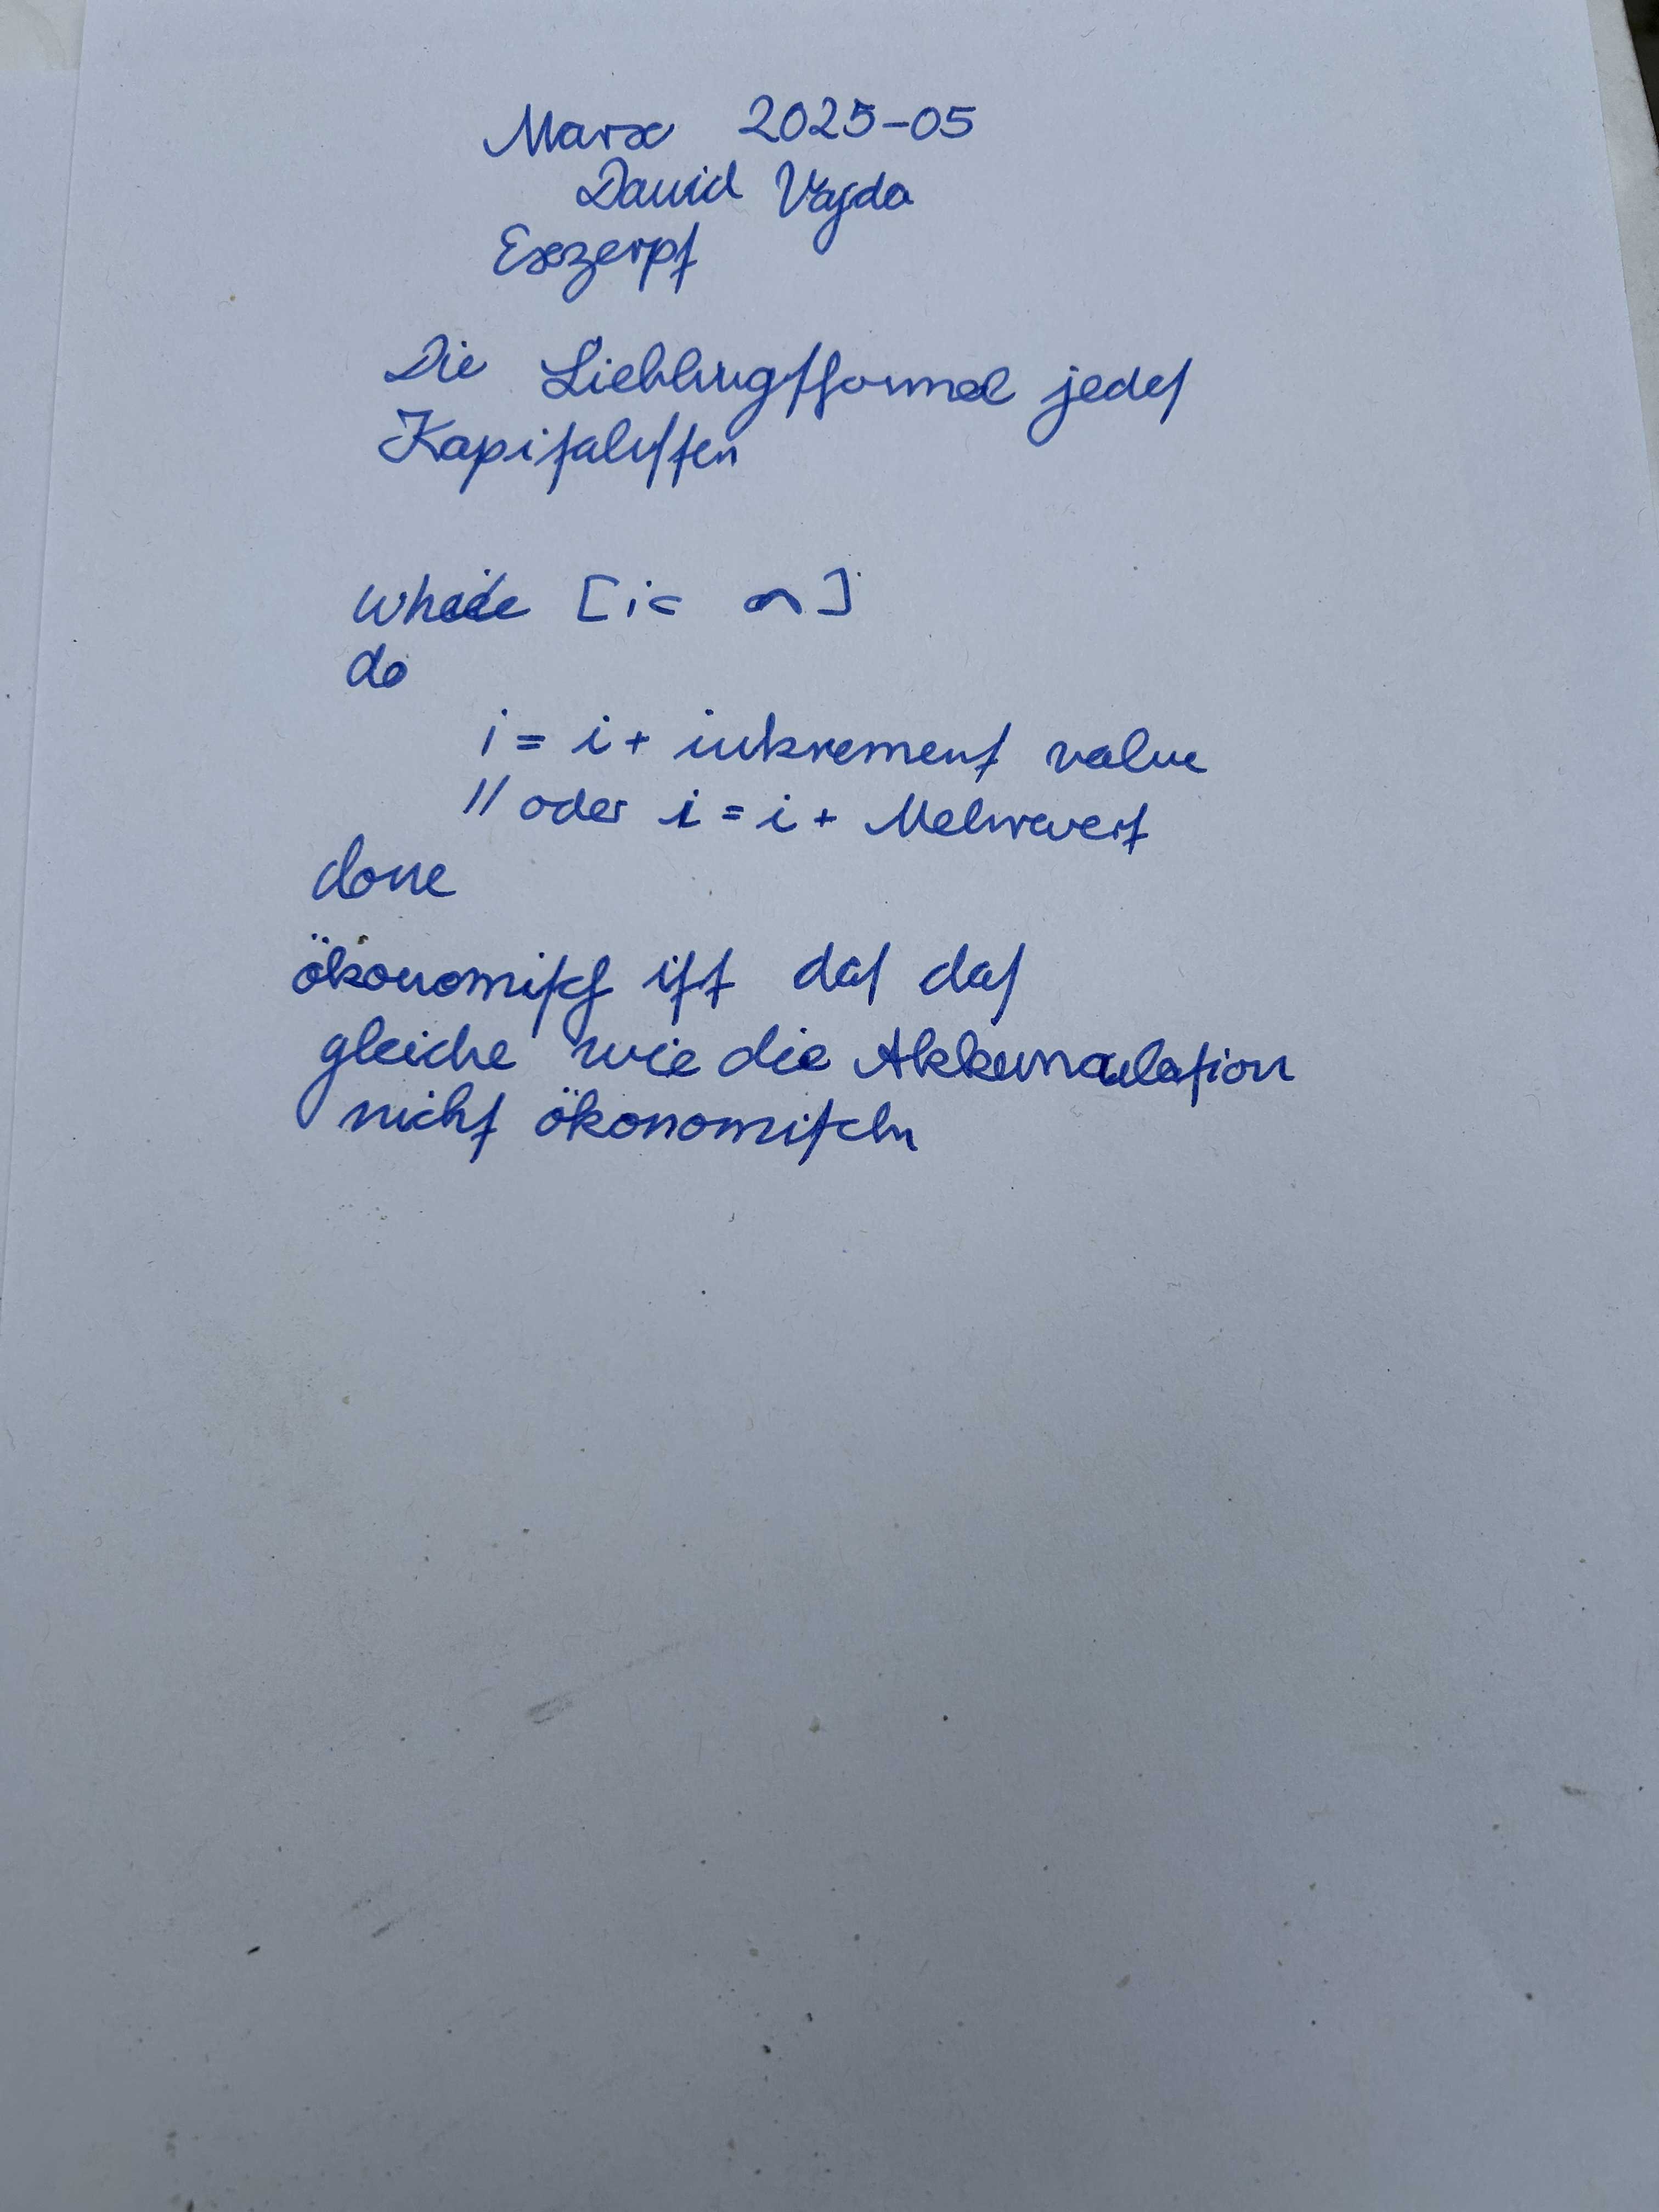 Marx 2025-05
David Vajda
Exzerpt
Die Lieblingsformel jedes
Kapitalisten
while [i< n]
do
i = i + inkrement value
// oder i = i + Mehrwert
done
ökonomisch ist das das
gleiche wie die Akkumulation
nicht ökonomisch